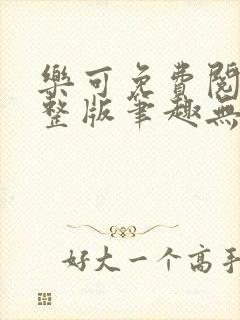 樂可免費閱
整版筆趣無
好大一个高手